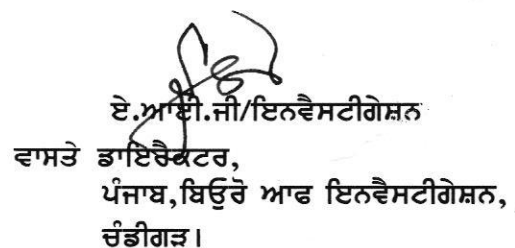 ਏ.ਆਈ.ਜੀ/ਇਨਵੈਸਟੀਗੇਸ਼ਨ
ਵਾਸਤੇ ਡਾਇਰੈਕਟਰ,
ਪੰਜਾਬ,ਬਿਓੁਰੋ ਆਫ ਇਨਵੈਸਟੀਗੇਸ਼ਨ,
ਚੰਡੀਗੜ।